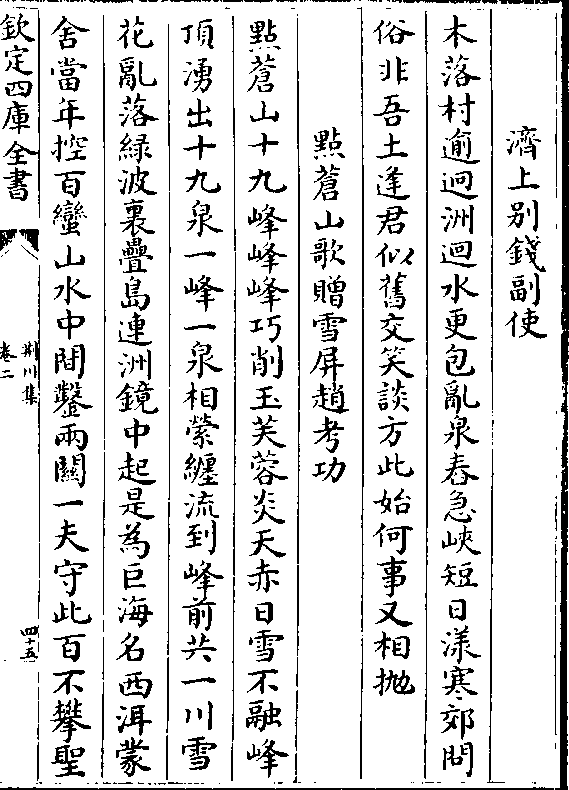 濟上别錢副使
木落村逾迥洲迴水更包亂泉舂急峽短日漾寒郊問
俗非吾土逢君似舊交笑談方此始何事又相拋
點蒼山歌贈雪屏趙考功
點蒼山十九峰峰峰巧削玉芙蓉炎天赤日雪不融峰
頂湧出十九泉一峰一泉相縈纏流到峰前共一川雪
花亂落綠波裏疊島連洲鏡中起是為巨海名西洱蒙
舍當年控百蠻山水中間鑿兩關一夫守此百不攀聖
欽定四庫全書
荆川集
卷二
四十五